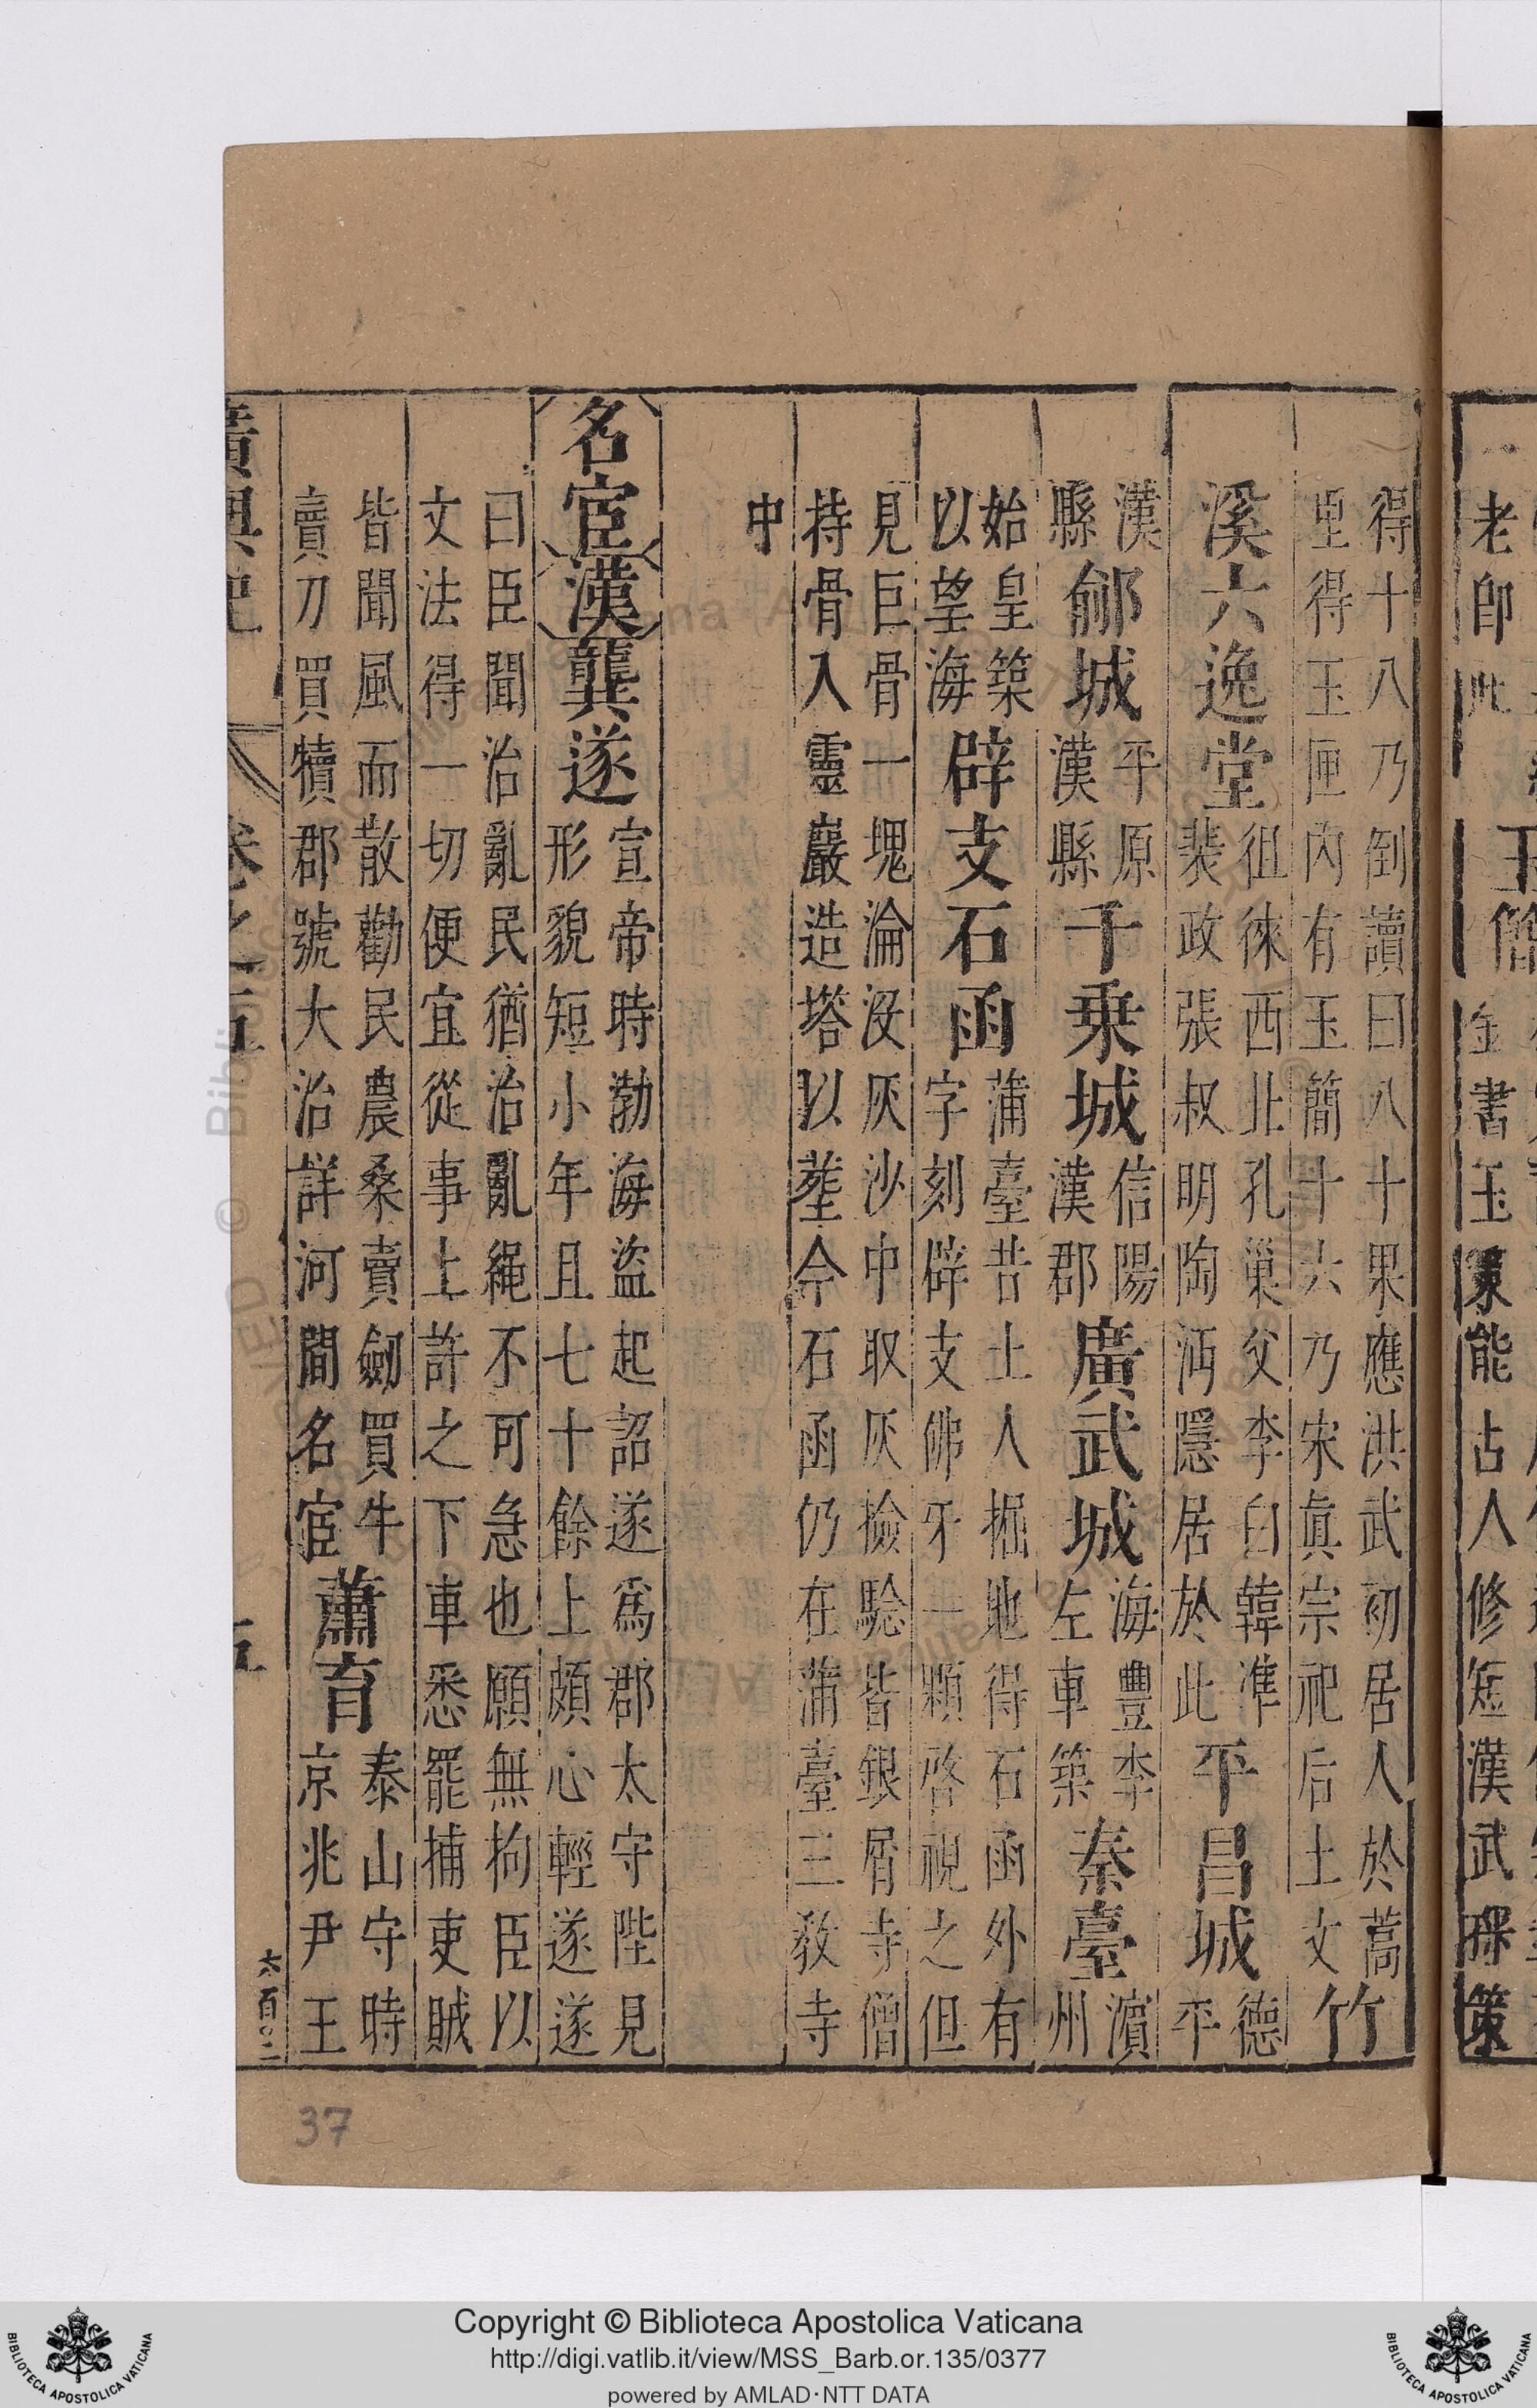 得十八乃倒讀曰八十果應洪武初居人於蒿
里得玉匣內有玉簡十六乃宋眞宗祀后土文
竹
溪六逸堂
徂徠西北孔巢父李白韓準
裴政張叔明陶沔隱居於此
平昌城
德
平
漢
縣
鄃城
平原
漢縣
千乗城
信陽
漢郡
廣武城
海豐李
左車築
秦臺
濵
州
始皇築
以望海
辟支石函
蒲臺昔土人掘地得石函外有
字刻辟支佛牙一顆啓視之但
見巨骨一塊淪沒灰沙中取灰撿驗皆銀屑寺僧
持骨入靈巖造塔以塟今石函仍在蒲臺三敎寺
中
名宦漢龔遂
宣帝時渤海盜起詔遂爲郡太守陛見
形貌短小年且七十餘上頗心輕遂遂
曰臣聞治亂民猶治亂繩不可急也願無拘臣以
文法得一切便宜從事上許之下車悉罷捕吏賊
皆聞風而散勸民農桑賣劒買牛
賣刀買犢郡號大治詳河間名宦
蕭育
泰山守時
京兆尹王
六百〇二
37
Copyright © Biblioteca Apostolica Vaticana
http://digi.vatlib.it/view/MSS_Barb.or.135/0377
powered by AMLAD·NTT DATA
BIBLIOTECA APOSTOLICA VATICANA
BIBLIOTECA APOSTOLICA VATICANA